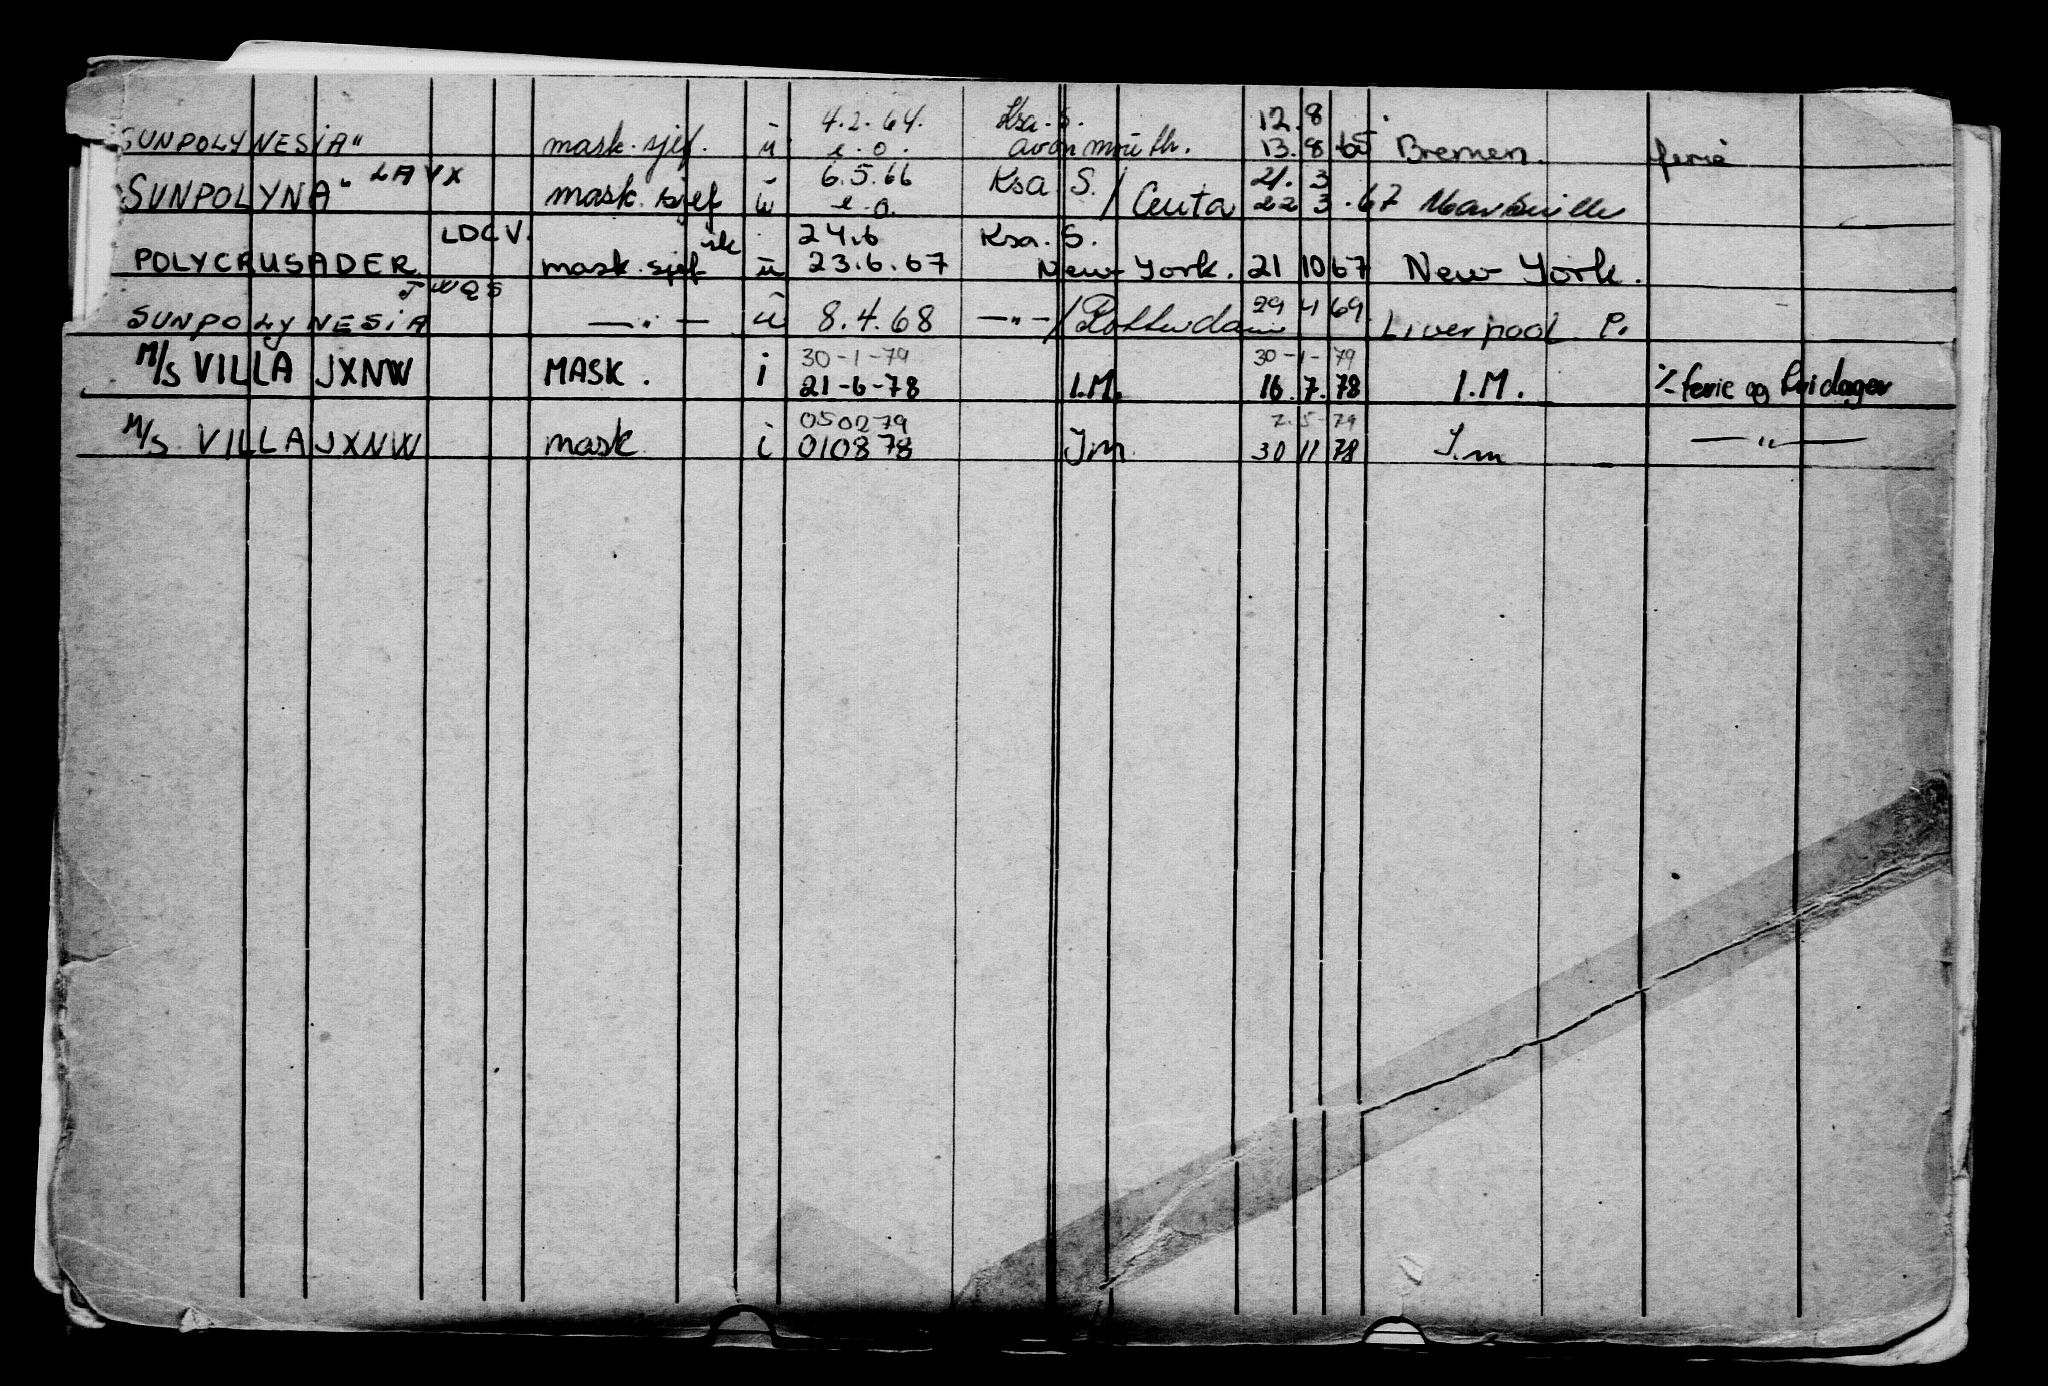 4.2.64. Ksa. S. 12.8
SUNPOLYNESIA" mask. sjef. ü e.o. avonmouth. 13.8 65 Bremen. ferie
LAVX 6.5.66 Ksa S. 21.3
SUNPOLYNA" mask. sjef ü e.o. / Ceuta 22 3.67 Marseille
LDCV. 24.6 Ksa. S.
POLYCRUSADER mask. sjef ü 23.6.67 New York. 21 10 67 New York.
SUNPOLYNESIA — " — ü 8.4.68 — " — / Rotterdam 29 4 69 Liverpool. P.
30-1-79 30-1-79
M/S VILLA JXNW MASK. i 21-6-78 I.M. 16.7.78 I.M. % ferie og fridager
050279 7.5-79
M/S. VILLA JXNW mask. i 010878 I.m. 30 11 78 I.m — " —